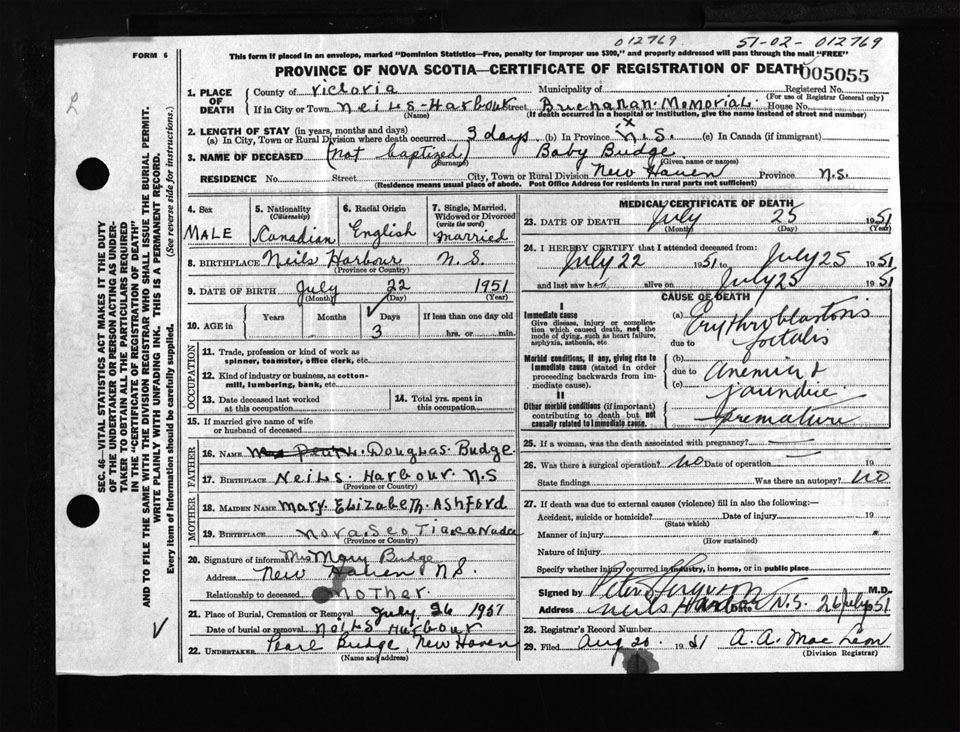 012769 51-02-012769
FORM 6
This form if placed in an envelope, marked "Dominion Statistics—Free, penalty for improper use $300," and properly addressed will pass through the mail "FREE"
PROVINCE OF NOVA SCOTIA—CERTIFICATE OF REGISTRATION OF DEATH 005055
1. PLACE OF DEATH County of Victoria Municipality of Registered No.
(For use of Registrar General only)
If in City or Town Neils-Harbour Street Buchanan-Memorial House No.
(Name) (If death occurred in a hospital or institution, give the name instead of street and number)
2. LENGTH OF STAY (in years, months and days)
(a) In City, Town or Rural Division where death occurred 3 days (b) In Province N.S. (c) In Canada (if immigrant)
3. NAME OF DECEASED (not baptized) Baby Budge
(Surname) (Given name or names)
RESIDENCE No. Street City, Town or Rural Division New Haven Province N.S.
(Residence means usual place of abode. Post Office Address for residents in rural parts not sufficient)
4. Sex MALE
5. Nationality (Citizenship) Canadian
6. Racial Origin English
7. Single, Married, Widowed or Divorced (write the word) married
8. BIRTHPLACE Neils Harbour N.S.
(Province or Country)
9. DATE OF BIRTH July 22 1951
(Month) (Day) (Year)
10. AGE in Years Months Days If less than one day old
3 hrs. or min.
OCCUPATION
11. Trade, profession or kind of work as
spinner, teamster, office clerk, etc.
12. Kind of industry or business, as cotton-
mill, lumbering, bank, etc.
13. Date deceased last worked
at this occupation
14. Total yrs. spent in
this occupation
15. If married give name of wife
or husband of deceased
FATHER
16. NAME Douglas. Budge.
17. BIRTHPLACE Neils. Harbour. N.S
(Province or Country)
MOTHER
18. MAIDEN NAME Mary. Elizabeth. Ashford
19. BIRTHPLACE Nova. Scotia. Canada
(Province or Country)
20. Signature of informant Mrs Mary Budge
Address New Haven N.S.
Relationship to deceased Mother.
21. Place of Burial, Cremation or Removal July 26 1951
Date of burial or removal Neils Harbour
22. UNDERTAKER Pearl Budge, New Haven
(Name and address)
MEDICAL CERTIFICATE OF DEATH
23. DATE OF DEATH July 25 1951
(Month) (Day) (Year)
24. I HEREBY CERTIFY that I attended deceased from:
July 22 1951 to July 25 1951
and last saw h alive on July 25 1951
CAUSE OF DEATH
I
Immediate cause
Give disease, injury or complica-
tion which caused death, not the
mode of dying, such as heart failure,
asphyxia, asthenia, etc.
(a) Erythroblastosis
due to foetalis
Morbid conditions, if any, giving rise to
immediate cause (stated in order
proceeding backwards from im-
mediate cause).
(b)
due to anemia &
(c) jaundice
II
Other morbid conditions (if important)
contributing to death but not
causally related to immediate cause.
premature
25. If a woman, was the death associated with pregnancy?
26. Was there a surgical operation? no Date of operation 19
State findings Was there an autopsy? no
27. If death was due to external causes (violence) fill in also the following:—
Accident, suicide or homicide? Date of injury 19
(State which)
Manner of injury
(How sustained)
Nature of injury
Specify whether injury occurred in industry, in home, or in public place
Signed by M.D.
Address Neils Harbour N.S. 26 July 51
28. Registrar's Record Number
29. Filed Aug 20. 1951 A. A. MacLeon
(Division Registrar)
SEC. 46—VITAL STATISTICS ACT MAKES IT THE DUTY
OF THE UNDERTAKER OR PERSON ACTING AS UNDER-
TAKER TO OBTAIN ALL THE PARTICULARS REQUIRED
IN THE "CERTIFICATE OF REGISTRATION OF DEATH"
AND TO FILE THE SAME WITH THE DIVISION REGISTRAR WHO SHALL ISSUE THE BURIAL PERMIT.
WRITE PLAINLY WITH UNFADING INK. THIS IS A PERMANENT RECORD.
Every item of information should be carefully supplied. (See reverse side for instructions.)